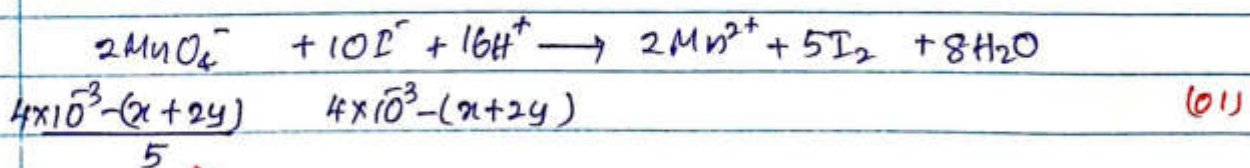 2MnO₄⁻ + 10I⁻ + 16H⁺ ⟶ 2Mn²⁺ + 5I₂ + 8H₂O
4×10⁻³-(x+2y) 4×10⁻³-(x+2y) (01)
5